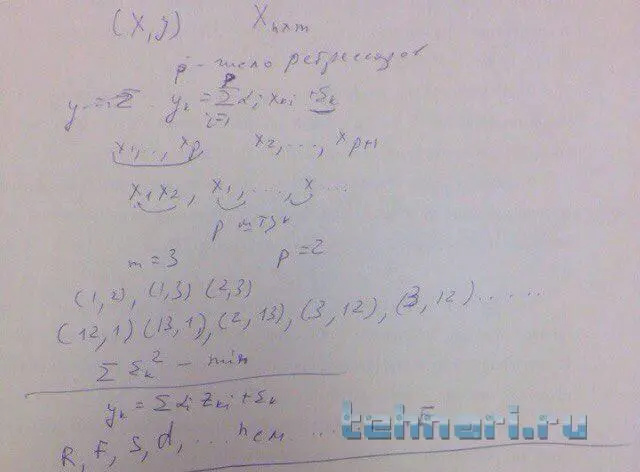 (X, y) X_{n×m}
p - число регрессоров
y_k = \sum_{i=1}^{p} α_i x_{ki} + ε_k
x_1, ..., x_p x_2, ..., x_{p+1}
x_1 x_2, x_1, ..., x ...
p
m = 3 p = 2
(1, 2), (1, 3) (2, 3)
(12, 1) (13, 1), (2, 13), (3, 12), (3, 12) .....
Σ ε_k^2 - min
y_k = Σ α_i z_{ki} + ε_k
R, F, S, d, ...
tehnari.ru